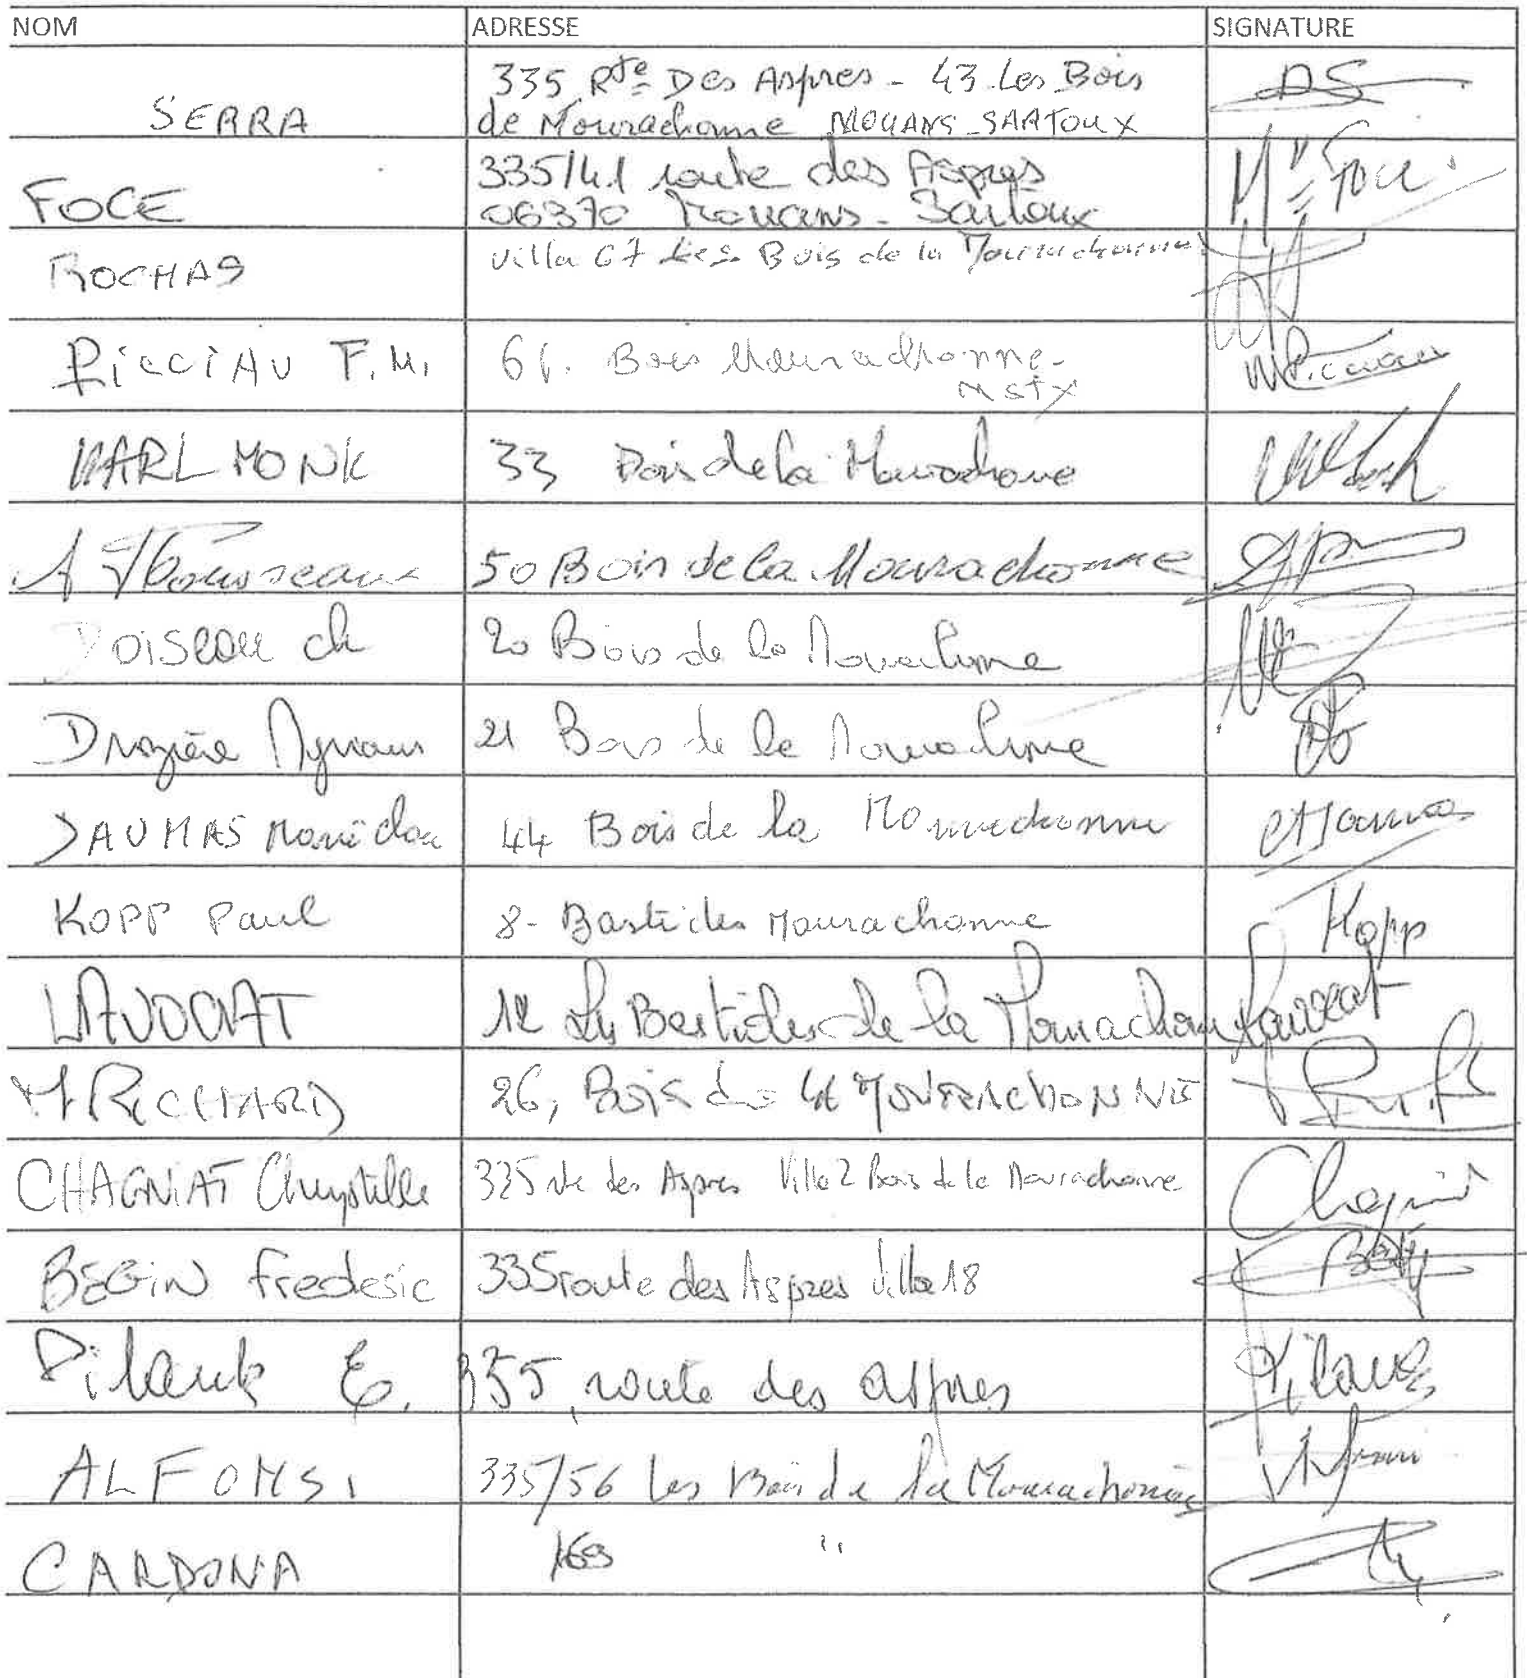 NOM ADRESSE SIGNATURE
SERRA 335 Rte Des Aspres - 43 Les Bois
de Mourachonne MOUANS-SARTOUX
FOCE 335/41 route des Aspres
06370 Mouans-Sartoux
ROCHAS Villa 67 Les Bois de la Mourachonne
RiCCiAU F.M. 61. Bois Mourachonne-
MStX
KARL MONK 33 Bois de la Mourachone
A 50 Bois de la Mourachonne
ch 20 Bois de la Mourachonne
21 Bois de la Mourachonne
44 Bois de la Mourachonne
KOPP Paul 8- Bastides Mourachonne Kopp
LAVOCAT 12 Les Bastides de la Lavocat
M RICHARD 26, Bois de LA MOURACHONNE
CHAGNIAT Chrystelle 335 rte des Aspres Villa 2 Bois de la Mourachonne
BEGiN frederic 335 route des Aspres Villa 18
E. 335, route des aspres
ALFONSI 335/56 Les Bois de la Mourachonne
CARDONA "